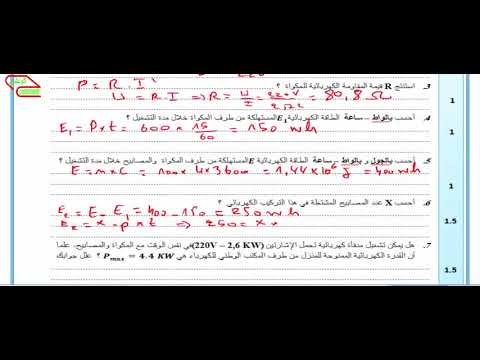 220
P = R . I²
3. استنتج R قيمة المقاومة الكهربائية للمكواة ؟
U = R . I ⇒ R = U/I = 220V/2,72 = 80,8 Ω
1
4. أحسب بالواط – ساعة الطاقة الكهربائية E1 المستهلكة من طرف المكواة خلال مدة التشغيل ؟
E1 = P × t = 600 × 15/60 = 150 wh
1
5. أحسب بالجول و بالواط – ساعة الطاقة الكهربائية E المستهلكة من طرف المكواة و المصابيح خلال مدة التشغيل ؟
E = n × C = 100 × 4 × 3600 = 1,44 × 10⁶ J = 400 wh
1
6. أحسب X عدد المصابيح المشتغلة في هذا التركيب الكهربائي ؟
E2 = E - E1 = 400 - 150 = 250 wh
E2 = x . p × t ⇒ 250 = x ×
1.5
7. هل يمكن تشغيل مدفأة كهربائية تحمل الإشارتين (220V – 2,6 KW) في نفس الوقت مع المكواة والمصابيح، علما
أن القدرة الكهربائية الممنوحة للمنزل من طرف المكتب الوطني للكهرباء هي Pmax = 4.4 KW ؟ علل جوابك
1.5